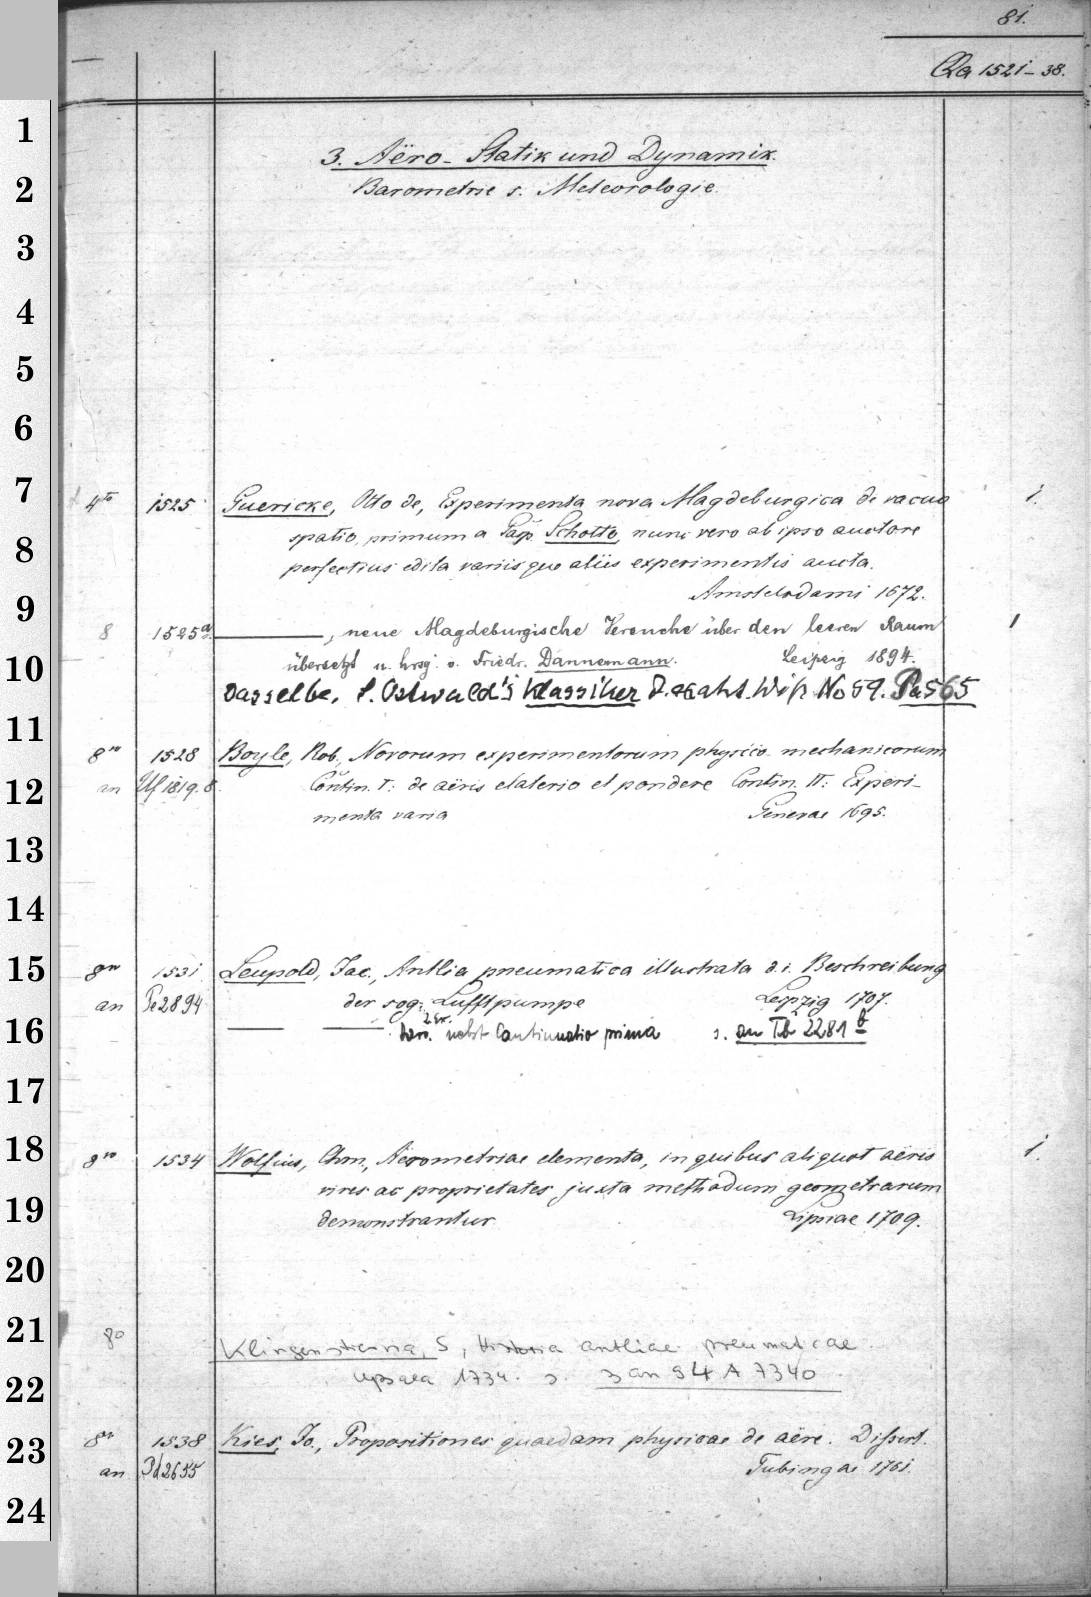 81.
Qa 1521-38.
1
3. Aëro- Statik und Dynamik.
2
Barometrie s. Meteorologie.
3
4
5
6
7
4to 1525 Guericke, Otto de, Experimenta nova Magdeburgica de vacuo 1.
8
spatio, primum a Gasp Schotto, nunc vero ab ipso auctore
perfectius edita variisque aliis experimentis aucta.
9
Amstelodami 1672.
8 1525a. ———, neue Magdeburgische Versuche über den leeren Raum 1
10
übersetzt u. hrsg. v. Friedr. Dannemann. Leipzig 1894.
Dasselbe, s. Ostwald's Klassiker d. exakt. Wiss. No 59. Pa 565
11
8vo 1528 Boyle, Rob., Novorum experimentorum physico mechanicorum
12
an Uf 1819.8. Contin. I: de aëris elaterio et pondere Contin. II: Experi-
menta varia Genevae 1695.
13
14
15
8vo 1531 Leupold, Jac., Antlia pneumatica illustrata d.i. Beschreibung
an Pe 2894 der sog. Lufftpumpe Leipzig 1707.
16
—— —— 2 Ex. nebst Continuatio prima s. an Tb 2281 b
17
18
8vo 1534 Wolfius, Chrn., Aërometriae elementa, in quibus aliquot aëris 1.
vires ac proprietates juxta methodum geometrarum
19
demonstrantur Lipsiae 1709.
20
21
8o Klingenstierna, S, Historia antliae pneumaticae
22
Upsala 1734. s. 3 an 94 A 7340
23
8vo 1538 Kies, Jo., Propositiones quaedam physicae de aëre. Dissert.
an Pd 2655 Tubingae 1761.
24